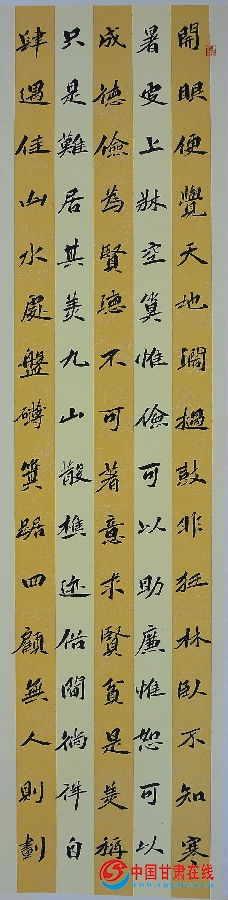 開眼便覺天地濶撾鼓非狂林臥不知寒
暑更上牀空算惟儉可以助廉惟恕可以
成德儉為賢德不可著意求賢貧是美稱
只是難居其美九山散樵迹俗間徜徉自
肆遇佳山水處盤礴箕踞四顧無人則劃
中国甘肃在线
WWW.GSCN.COM.CN